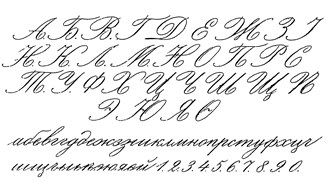 А.Б.В.Г Д Е Ж З І
Н.К.Л.М.Н О П Р С
Т.У.Ф Х Ц Ч Ш Щ Ъ
Э Ю Я Ѳ
абвгдежзиклмнопрстуфхцч
шщъыьѣэюяѳй 1.2.3.4.5.6.7.8.9.0.